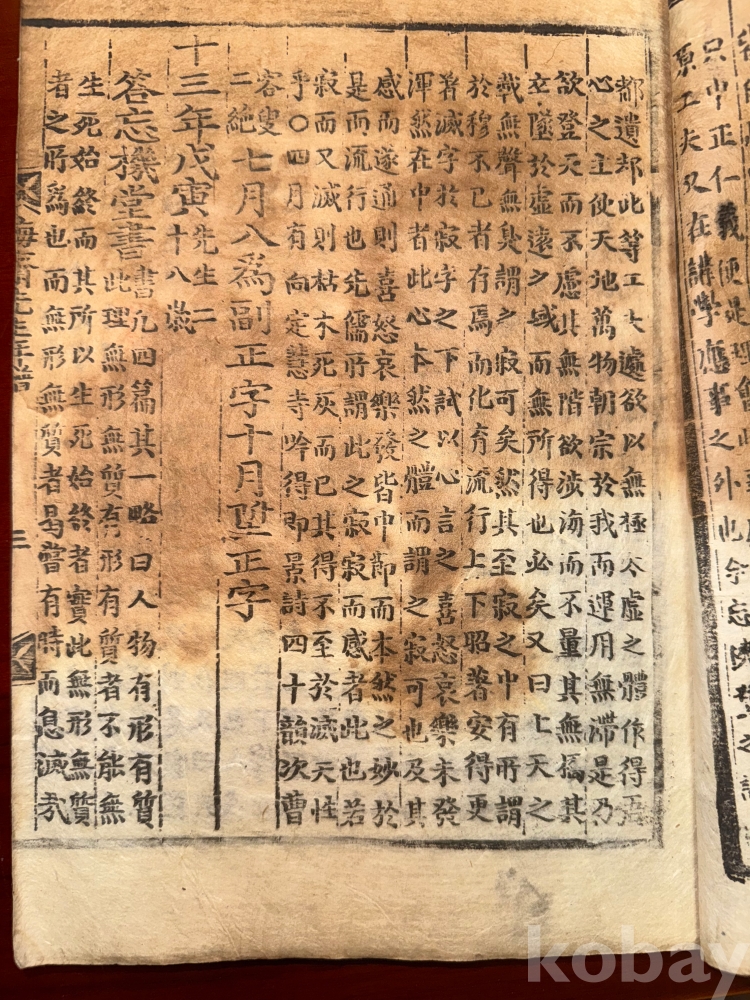 只中正仁義便是理會此
原工夫又在講學應事之外也今忘機堂之
都遺却此等工夫處欲以無極太虛之體作得吾
心之主使天地萬物朝宗於我而運用無滯是乃
欲登天而不慮其無階欲涉海而不量其無橋其
卒墜於虛遠之域而無所得也必矣又曰上天之
載無聲無臭謂之寂可矣然其至寂之中有所謂
於穆不已者存焉而化育流行上下昭著安得更
著滅字於寂字之下試以心言之喜怒哀樂未發
渾然在中者此心本然之體而謂之寂可也及其
感而遂通則喜怒哀樂發皆中節而本然之妙於
是而流行也先儒所謂此之寂寂而感者此也若
寂而又滅則枯木死灰而已其得不至於滅天性
乎〇四月有向定慧寺吟得即景詩四十韻次曹
容叟
二絶
七月入爲副正字十月陞正字
十三年戊寅
先生二
十八歲
答忘機堂書
書凡四篇其一略曰人物有形有質
此理無形無質有形有質者不能無
生死始終而其所以生死始終者實此無形無質
者之所爲也而無形無質者曷嘗有時而息滅哉
晦齋先生年譜
三
kobay